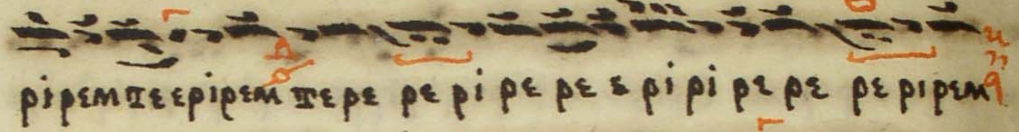 ριρεμ τε ε ριρεμ τε ρε ρε ρι ρε ρε ε ρι ρι ρε ρε ρε ρι ρεμ